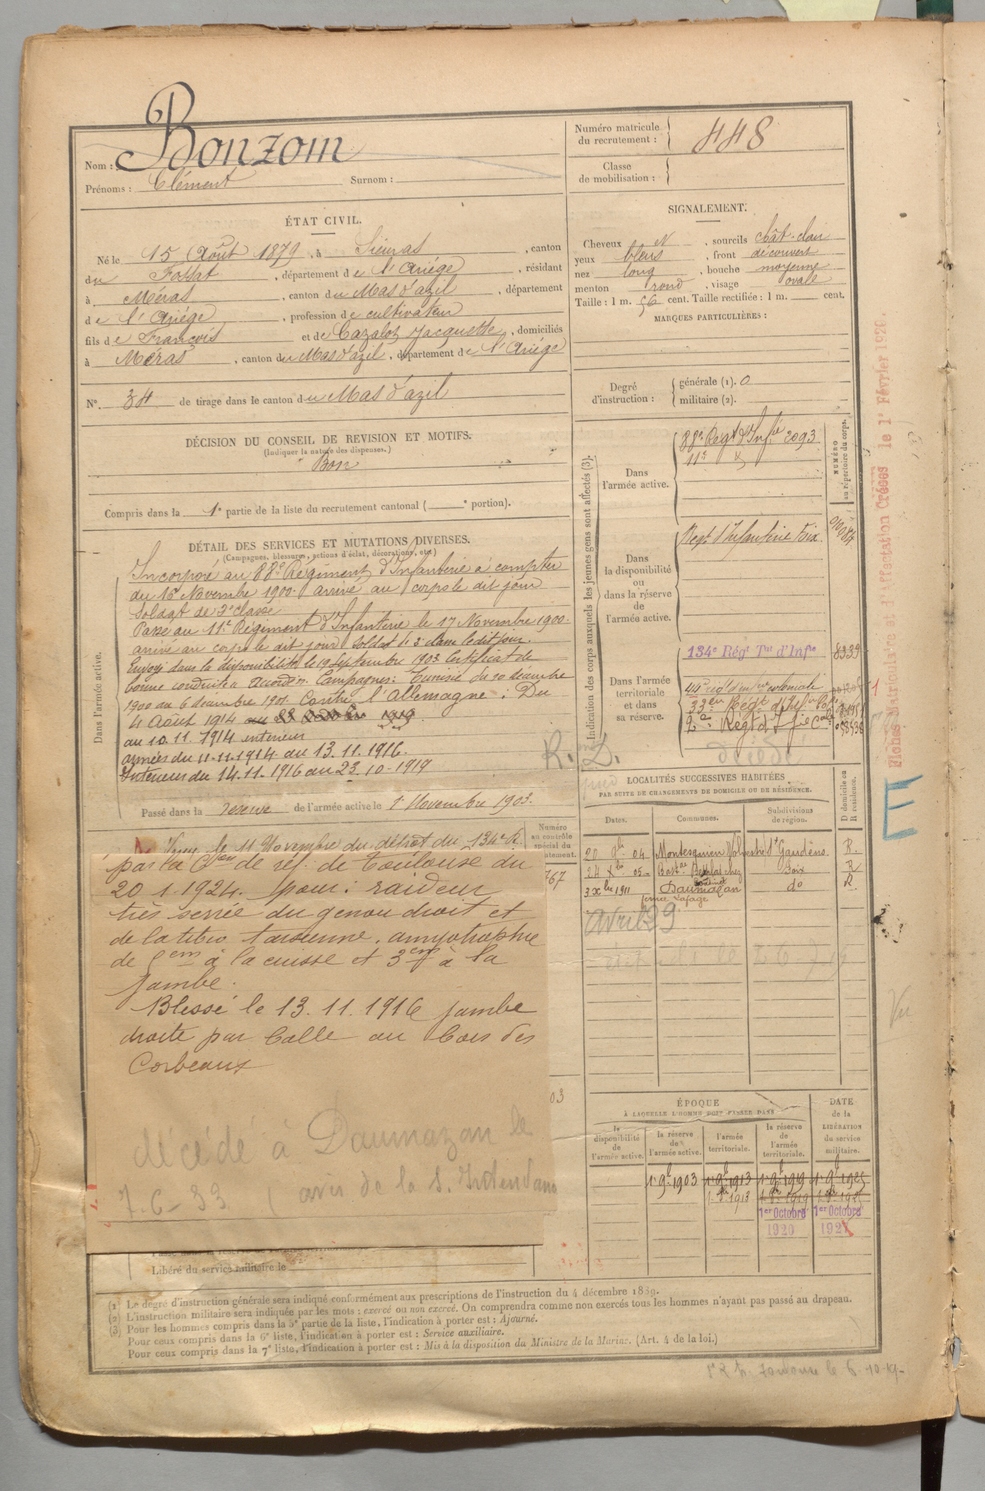 Nom : Bonzom
Prénoms : Clément Surnom :
Numéro matricule du recrutement : 448
Classe de mobilisation :
ÉTAT CIVIL.
Né le 15 Août 1879, à Sieuras, canton
du Fossat, département de l'Ariège, résidant
à Méras, canton du Mas d'azil, département
de l'Ariège, profession de cultivateur
fils de François et de Cazalot Jacquette, domiciliés
à Méras, canton du Mas d'azil, département de l'Ariège
N° 34 de tirage dans le canton du Mas d'azil
SIGNALEMENT.
Cheveux N, sourcils chât. clair
yeux bleus, front découvert
nez long, bouche moyenne
menton rond, visage ovale
Taille : 1 m. 56 cent. Taille rectifiée : 1 m. cent.
MARQUES PARTICULIÈRES :
Degré d'instruction : générale (1). 0
militaire (2).
DÉCISION DU CONSEIL DE REVISION ET MOTIFS.
(Indiquer la nature des dispenses.)
Bon
Compris dans la 1e partie de la liste du recrutement cantonal ( e portion).
DÉTAIL DES SERVICES ET MUTATIONS DIVERSES.
(Campagnes, blessures, actions d'éclat, décorations, etc.)
Dans l'armée active.
Incorporé au 88e Régiment d'Infanterie à compter
du 16 Novembre 1900. arrivé au corps le dit jour
Soldat de 2e classe
Passé au 11e Régiment d'Infanterie le 17 Novembre 1900.
arrivé au corps le dit jour soldat de 2e classe le dit jour.
Envoyé dans la disponibilité le 19 septembre 1903 Certificat de
bonne conduite accordé. Campagnes : Tunisie du 20 décembre
1900 au 6 décembre 1901 Contre l'Allemagne : Du
4 Août 1914
au 10.11.1914 intérieur
armées du 11.11.1914 au 13.11.1916.
Intérieur du 14.11.1916 au 23.10.1919
Passé dans la réserve de l'armée active le 1er Novembre 1903.
Indication des corps auxquels les jeunes gens sont affectés (3).
NUMÉRO au répertoire du corps.
Dans l'armée active.
88e Régt d'Infie 2093
11e
Dans la disponibilité ou dans la réserve de l'armée active.
Régt d'Infanterie Foix
Dans l'armée territoriale et dans sa réserve.
134e Régt Terr d'Infie 8339
44e régt d'inf coloniale
33e Régt d'Inf Cole
2e Régt d'Infie Cole
R. D.
décédé
Fiches Matriculaire et d'Affectation Créées le 1er Février 1920.
LOCALITÉS SUCCESSIVES HABITÉES
PAR SUITE DE CHANGEMENTS DE DOMICILE OU DE RÉSIDENCE.
Dates. Communes. Subdivisions de région. D domicile ou R résidence.
20 9bre 04 Montesquieu Volvestre St Gaudens R.
24 Xbre 05 Foix R
3 Xbre 1911 Daumazan do R
ferme Lafage
Avril 29
Numéro au contrôle spécial du
par la Con de réf. de Toulouse du
20.1.1924. pour : raideur
très serrée du genou droit et
de la tibio tarsienne. amyotrophie
de 5cm à la cuisse et 3cm à la
jambe.
Blessé le 13.11.1916 jambe
droite par balle au bois des
Corbeaux
décédé à Daumazan le
7-6-33 (avis de la S. Intendance
Vu
ÉPOQUE
À LAQUELLE L'HOMME DOIT PASSER DANS
DATE de la LIBÉRATION du service militaire.
la disponibilité de l'armée active. la réserve de l'armée active. l'armée territoriale. la réserve de l'armée territoriale.
1er 9bre 1903 1er 9bre 1913 1er 9bre 1919 1er 9bre 1925
1er Octobre 1920 1er Octobre
Libéré du service militaire le
(1) Le degré d'instruction générale sera indiqué conformément aux prescriptions de l'instruction du 4 décembre 1889.
(2) L'instruction militaire sera indiquée par les mots : exercé ou non exercé. On comprendra comme non exercés tous les hommes n'ayant pas passé au drapeau.
(3) Pour les hommes compris dans la 5e partie de la liste, l'indication à porter est : Ajourné.
Pour ceux compris dans la 6e liste, l'indication à porter est : Service auxiliaire.
Pour ceux compris dans la 7e liste, l'indication à porter est : Mis à la disposition du Ministre de la Marine. (Art. 4 de la loi.)